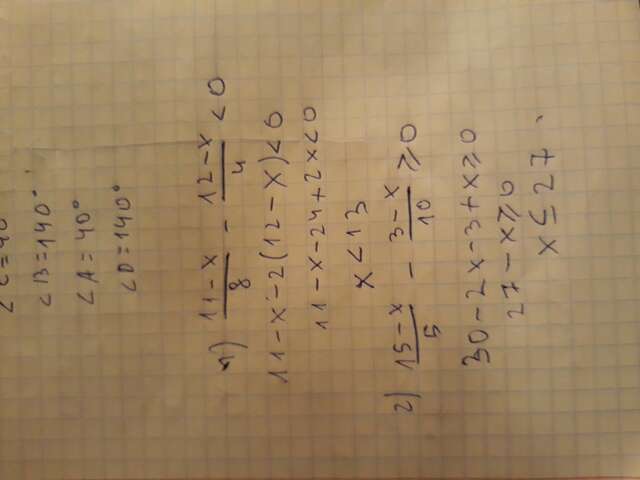 ∠C=40
∠B=140°
∠A=40°
∠D=140°
1) (11-x)/8 - (12-x)/4 < 0
11-x-2(12-x)<0
11-x-24+2x<0
x<13
2) (15-x)/5 - (3-x)/10 ⩾ 0
30-2x-3+x⩾0
27-x⩾0
x≤27